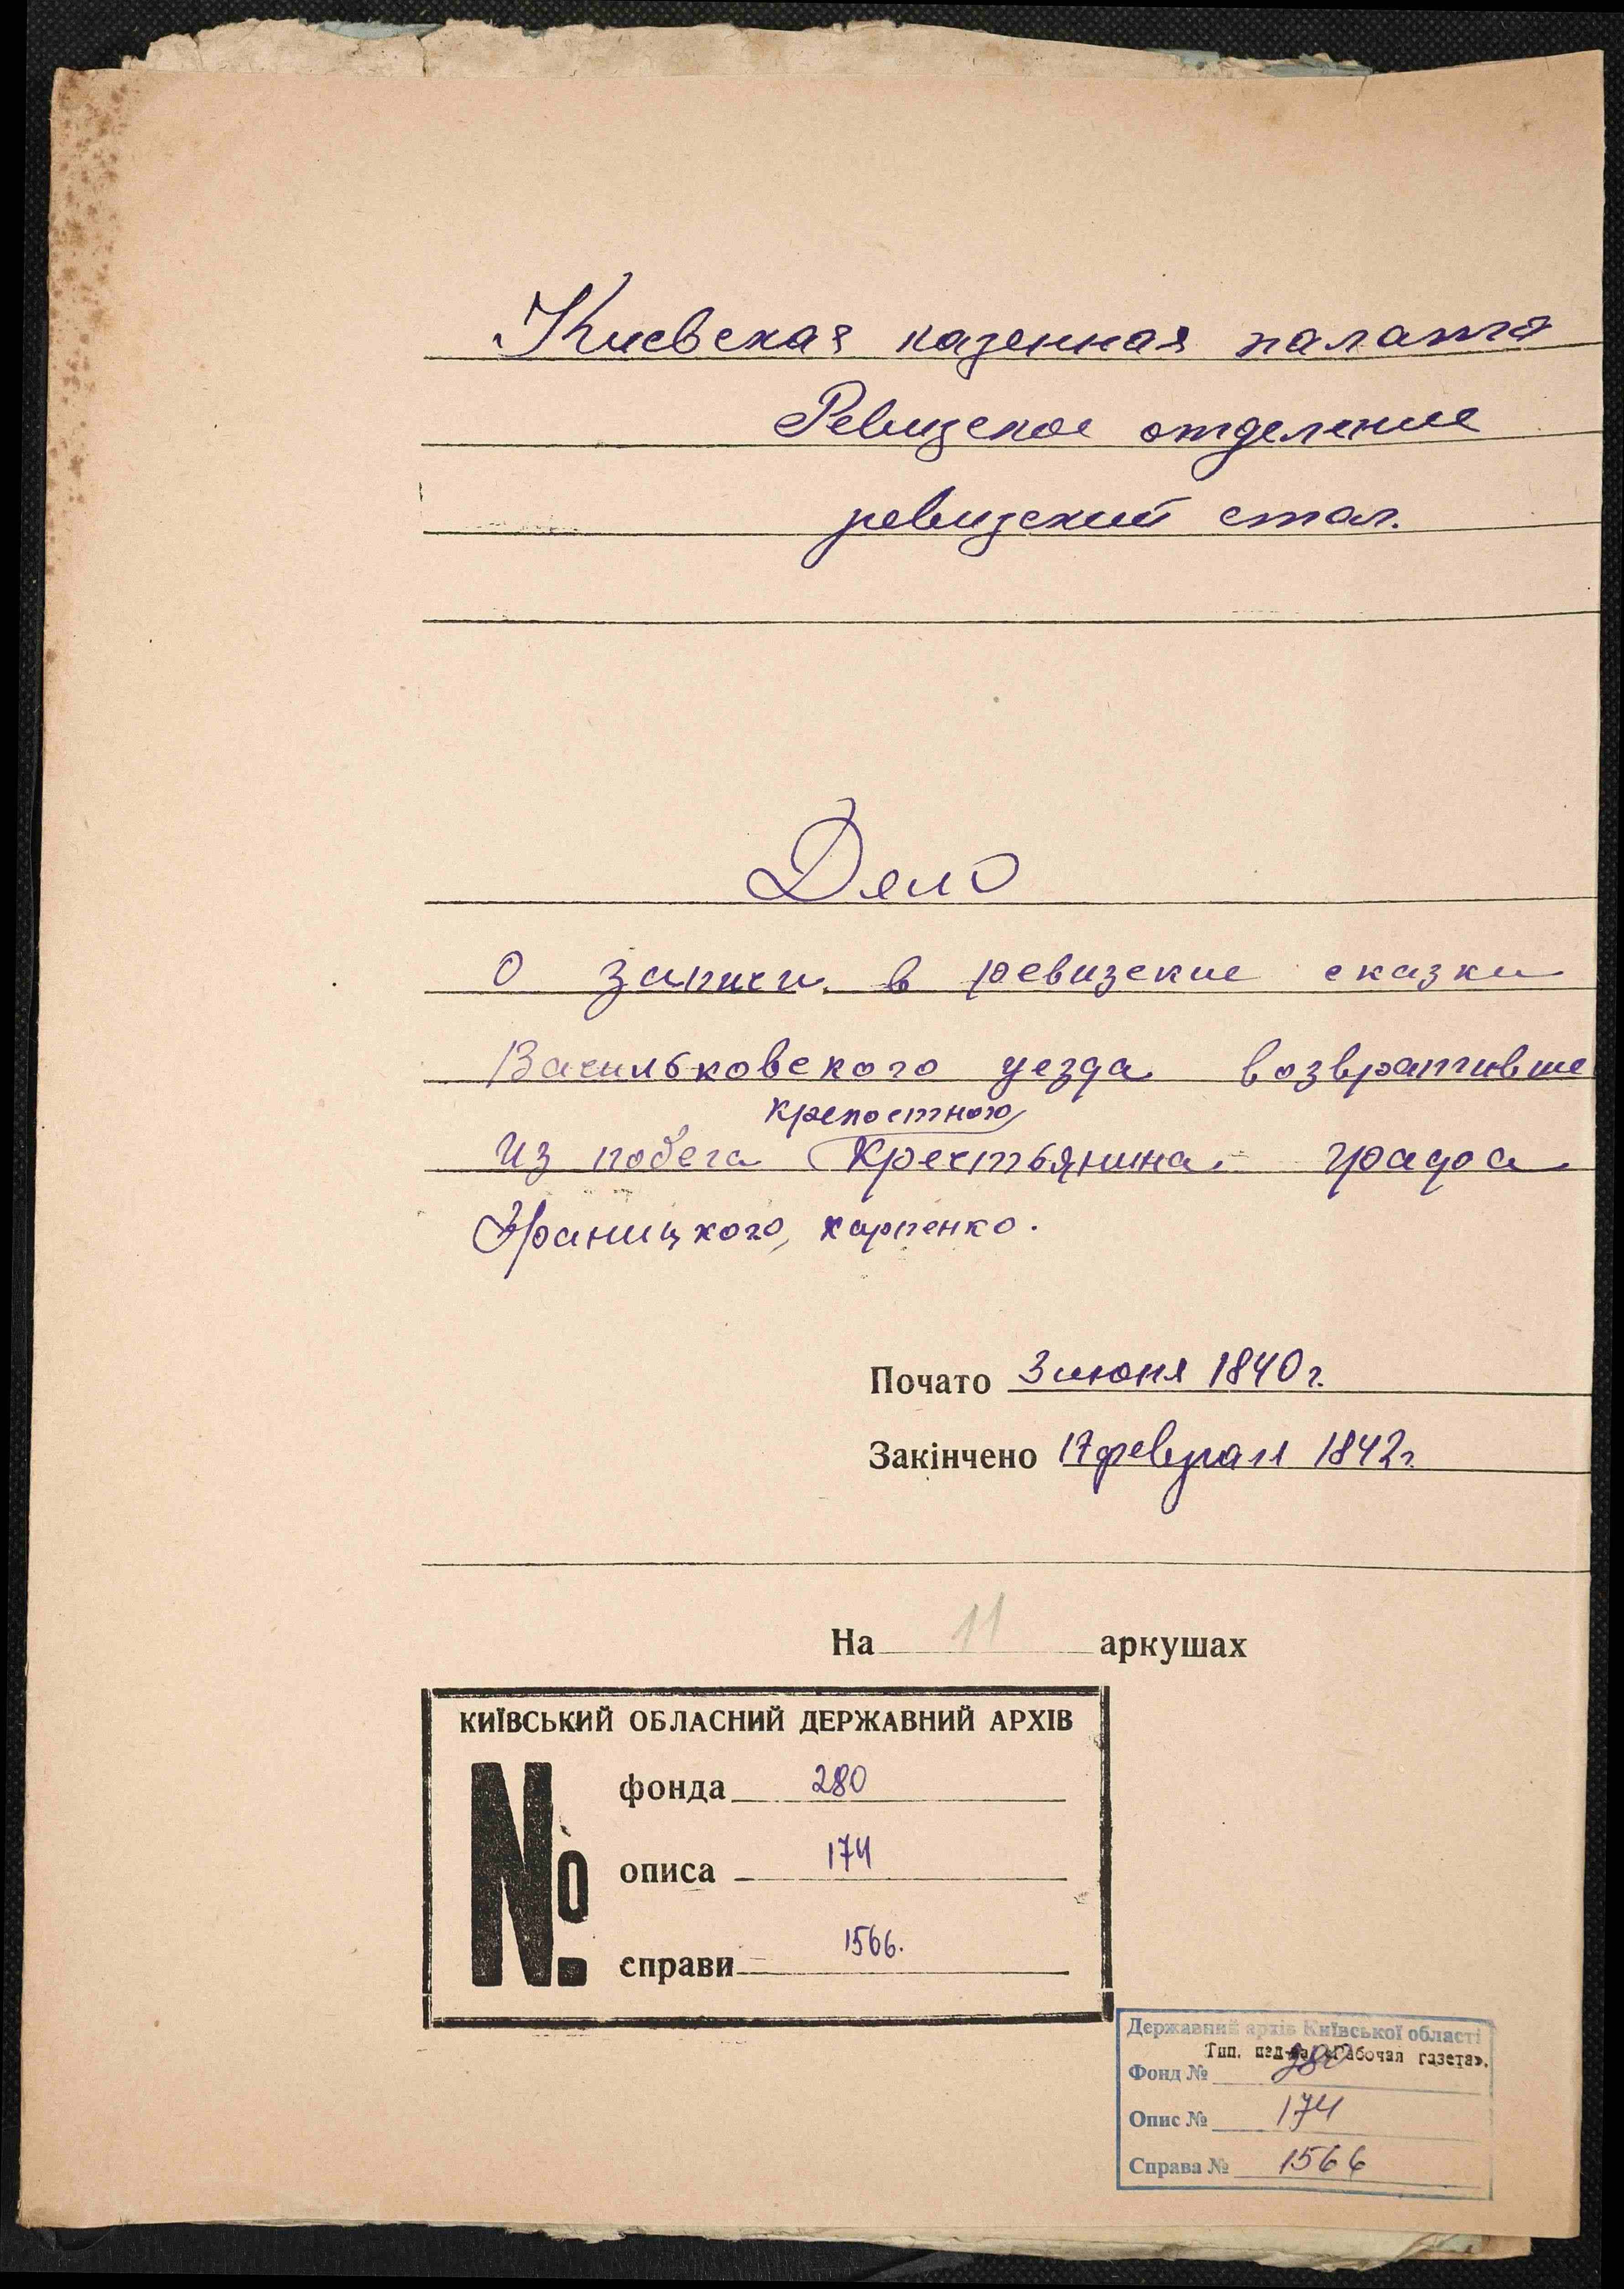 Киевская казенная палата
Ревизское отделение
ревизский стол.
Дело
о записи в ревизские сказки
Васильковского уезда возвративше
крепостного
из побега крестьянина графа
Браницкого, Карпенко.
Почато 3 июня 1840 г.
Закінчено 17 февраля 1842 г.
На 11 аркушах
КИЇВСЬКИЙ ОБЛАСНИЙ ДЕРЖАВНИЙ АРХІВ
№
фонда 280
описа 174
справи 1566.
Державний архів Київської області
Тип. изд-ва «Рабочая газета».
Фонд № 280
Опис № 174
Справа № 1566